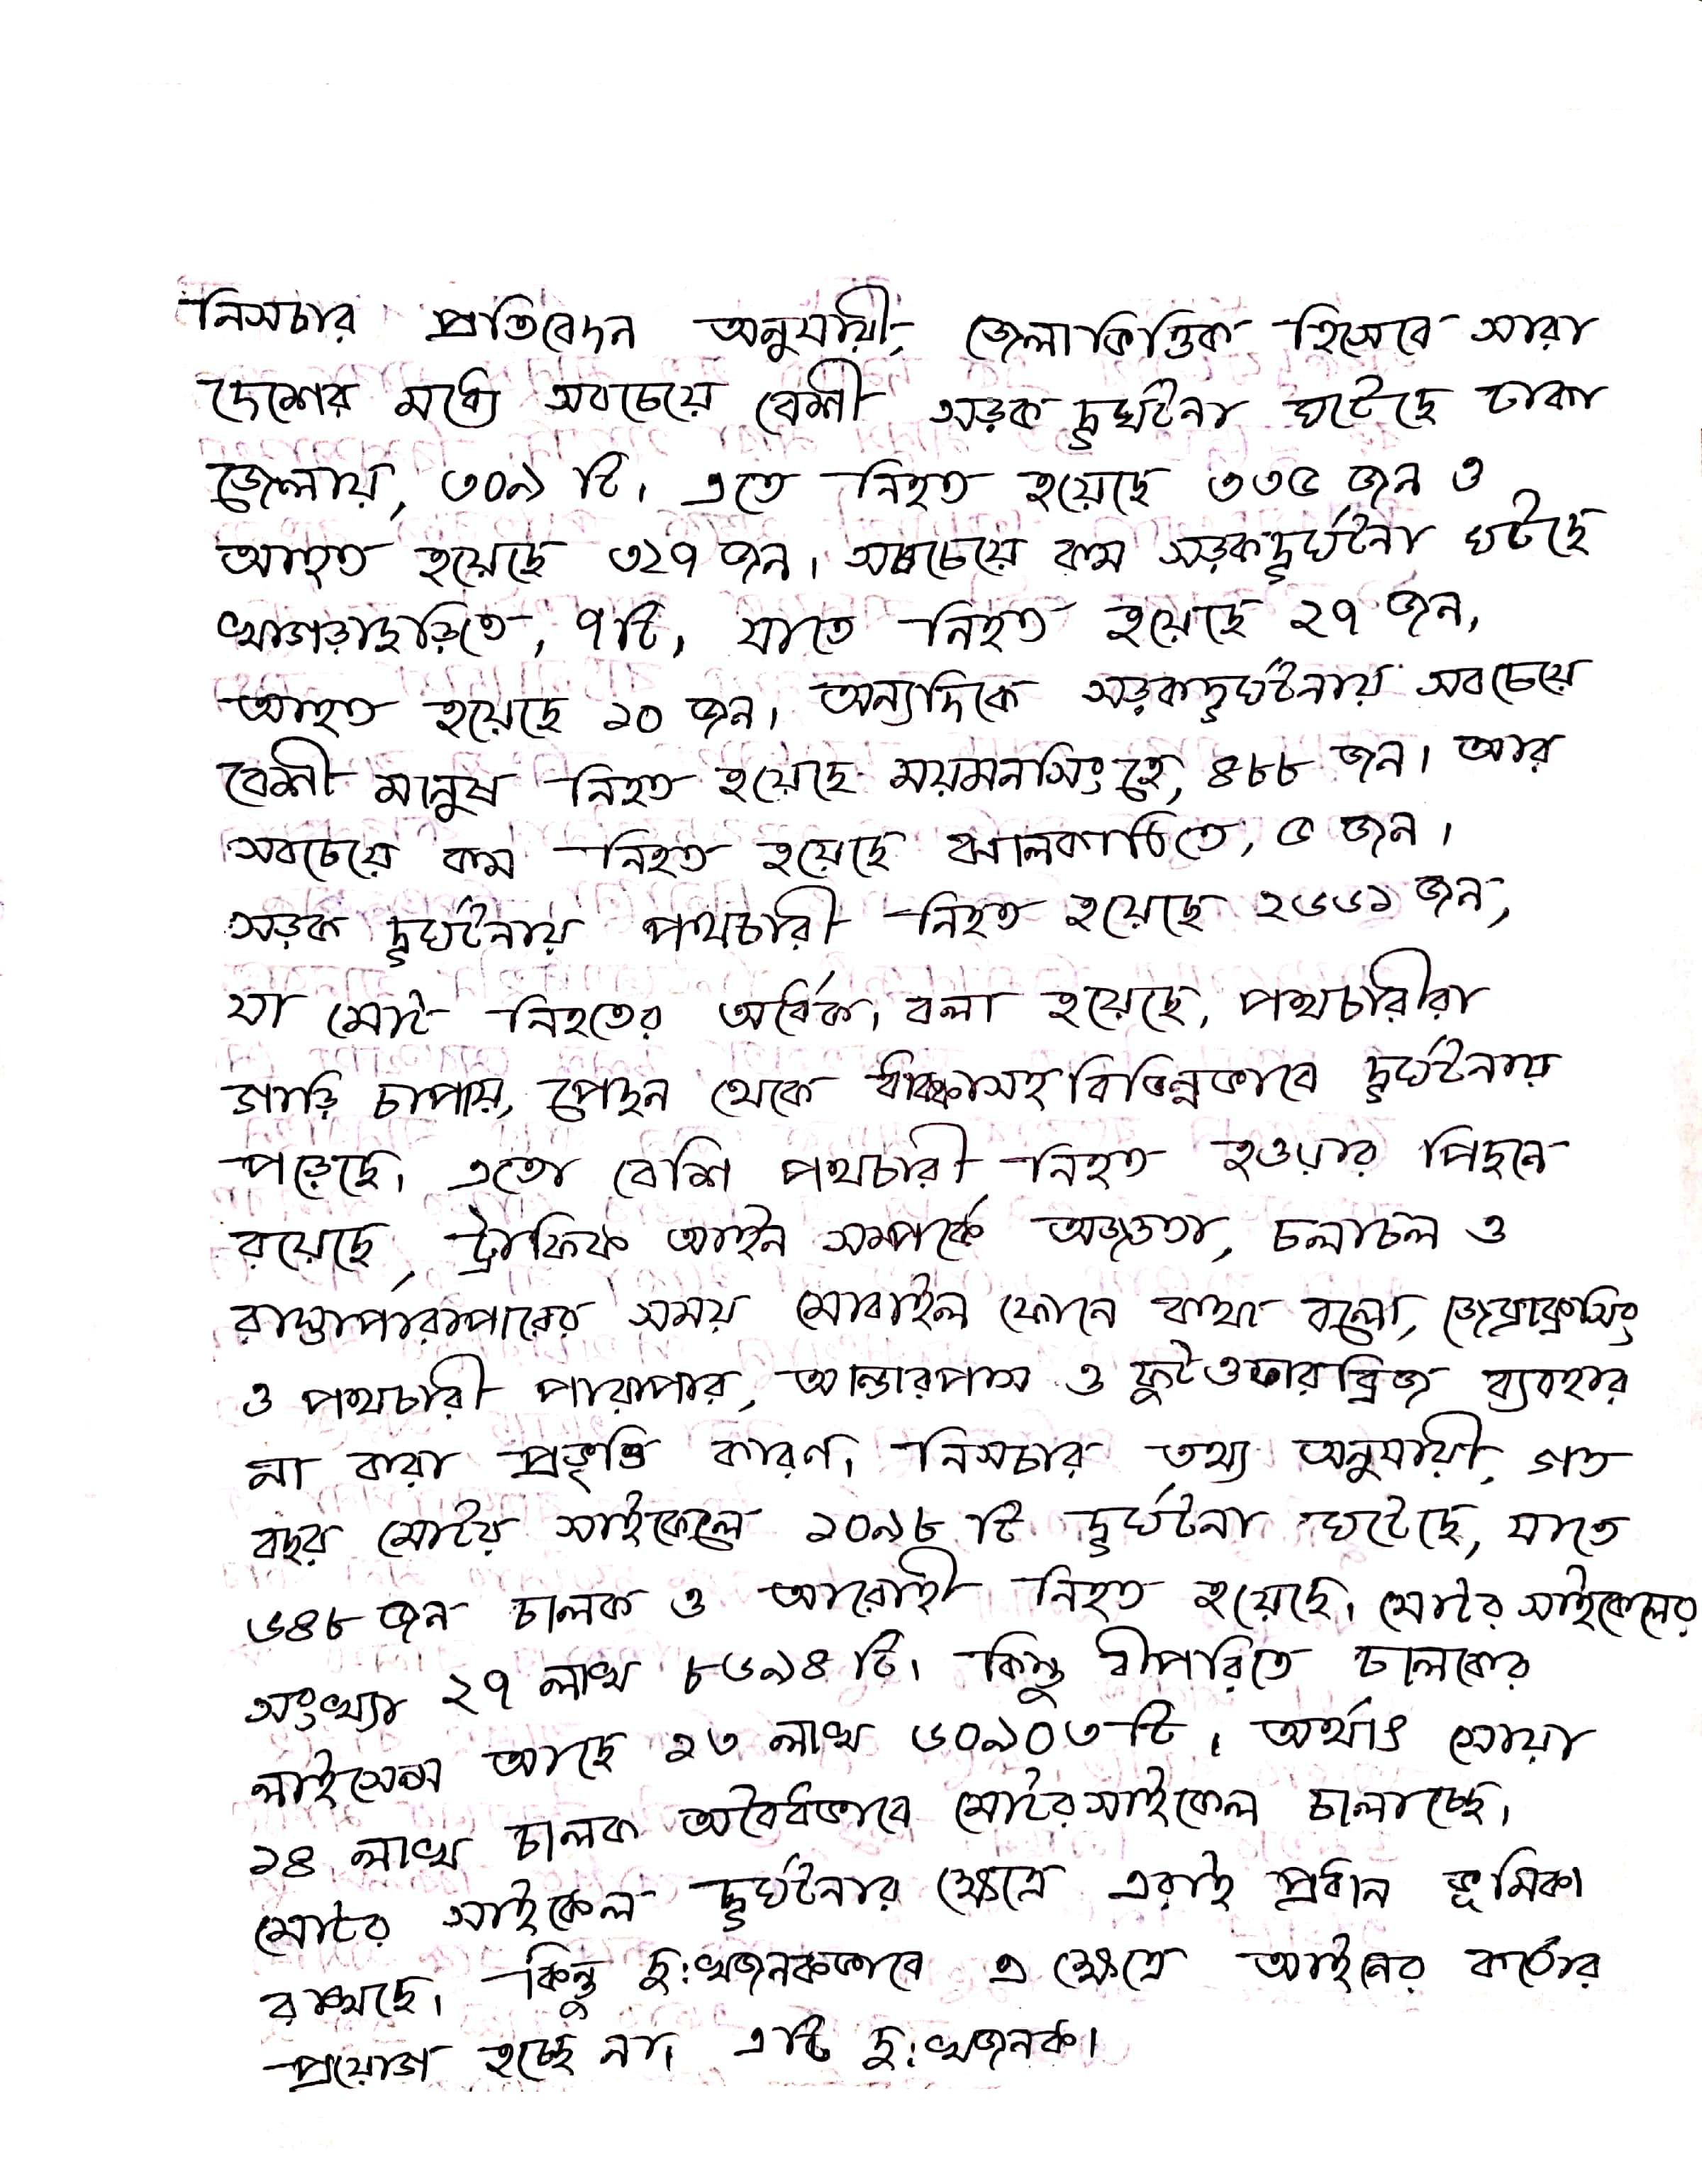 নিসচার প্রতিবেদন অনুযায়ী, জেলাভিত্তিক হিসেবে সারা
দেশের মধ্যে সবচেয়ে বেশী সড়ক দুর্ঘটনা ঘটেছে ঢাকা
জেলায়, ৩০৯ টি। এতে নিহত হয়েছে ৩৩৫ জন ও
আহত হয়েছে ৩২৭ জন। সবচেয়ে কম সড়কদুর্ঘটনা ঘটছে
খাগড়াছড়িতে, ৭টি, যাতে নিহত হয়েছে ২৭ জন,
আহত হয়েছে ১০ জন। অন্যদিকে সড়কদুর্ঘটনায় সবচেয়ে
বেশী মানুষ নিহত হয়েছে ময়মনসিংহে, ৪৮৮ জন। আর
সবচেয়ে কম নিহত হয়েছে ঝালকাঠিতে, ৫ জন।
সড়ক দুর্ঘটনায় পথচারী নিহত হয়েছে ২৬৬১ জন,
যা মোট নিহতের অর্ধেক। বলা হয়েছে, পথচারীরা
গাড়ি চাপায়, পেছন থেকে ধাক্কাসহ বিভিন্নভাবে দুর্ঘটনায়
পড়েছে। এতো বেশি পথচারী নিহত হওয়ার পিছনে
রয়েছে, ট্রাফিক আইন সম্পর্কে অজ্ঞতা, চলাচল ও
রাস্তাপারাপারের সময় মোবাইল ফোনে কথা বলো, জেব্রাক্রসিং
ও পথচারী পারাপার, আন্ডারপাস ও ফুটওভারব্রিজ ব্যবহার
না করা প্রভৃত্তি কারণ। নিসচার তথ্য অনুযায়ী, গত
বছর মোটর সাইকেলে ১০৯৮ টি দুর্ঘটনা ঘটেছে, যাতে
৬৪৮ জন চালক ও আরোহী নিহত হয়েছে। মোটর সাইকেলের
সংখ্যা ২৭ লাখ ৮৬৯৪ টি। কিন্তু বীপরিতে চালকের
লাইসেন্স আছে ১৩ লাখ ৬০৯০৩ টি। অর্থাৎ সোয়া
১৪ লাখ চালক অবৈধভাবে মোটরসাইকেল চালাচ্ছে।
মোটর সাইকেল দুর্ঘটনার ক্ষেত্রে এরাই প্রধান ভূমিকা
রাখছে। কিন্তু দু:খজনকভাবে এ ক্ষেত্রে আইনের কঠোর
প্রয়োগ হচ্ছে না। এটি দু:খজনক।